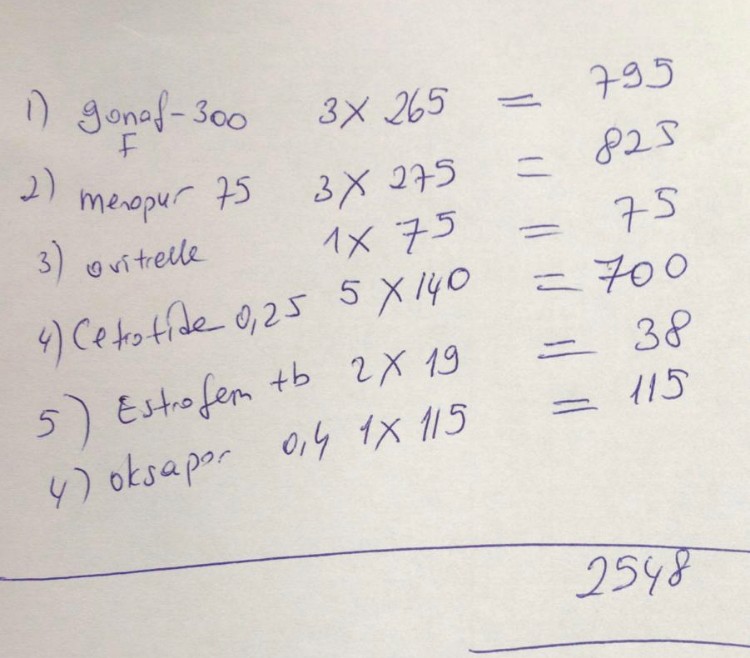 1) gonaf-300 3 X 265 = 795
F
2) menopur 75 3 X 275 = 825
3) ovitrelle 1 X 75 = 75
4) Cetrotide 0,25 5 X 140 = 700
5) Estrofem tb 2 X 19 = 38
4) oksapar 0,4 1 X 115 = 115
2548